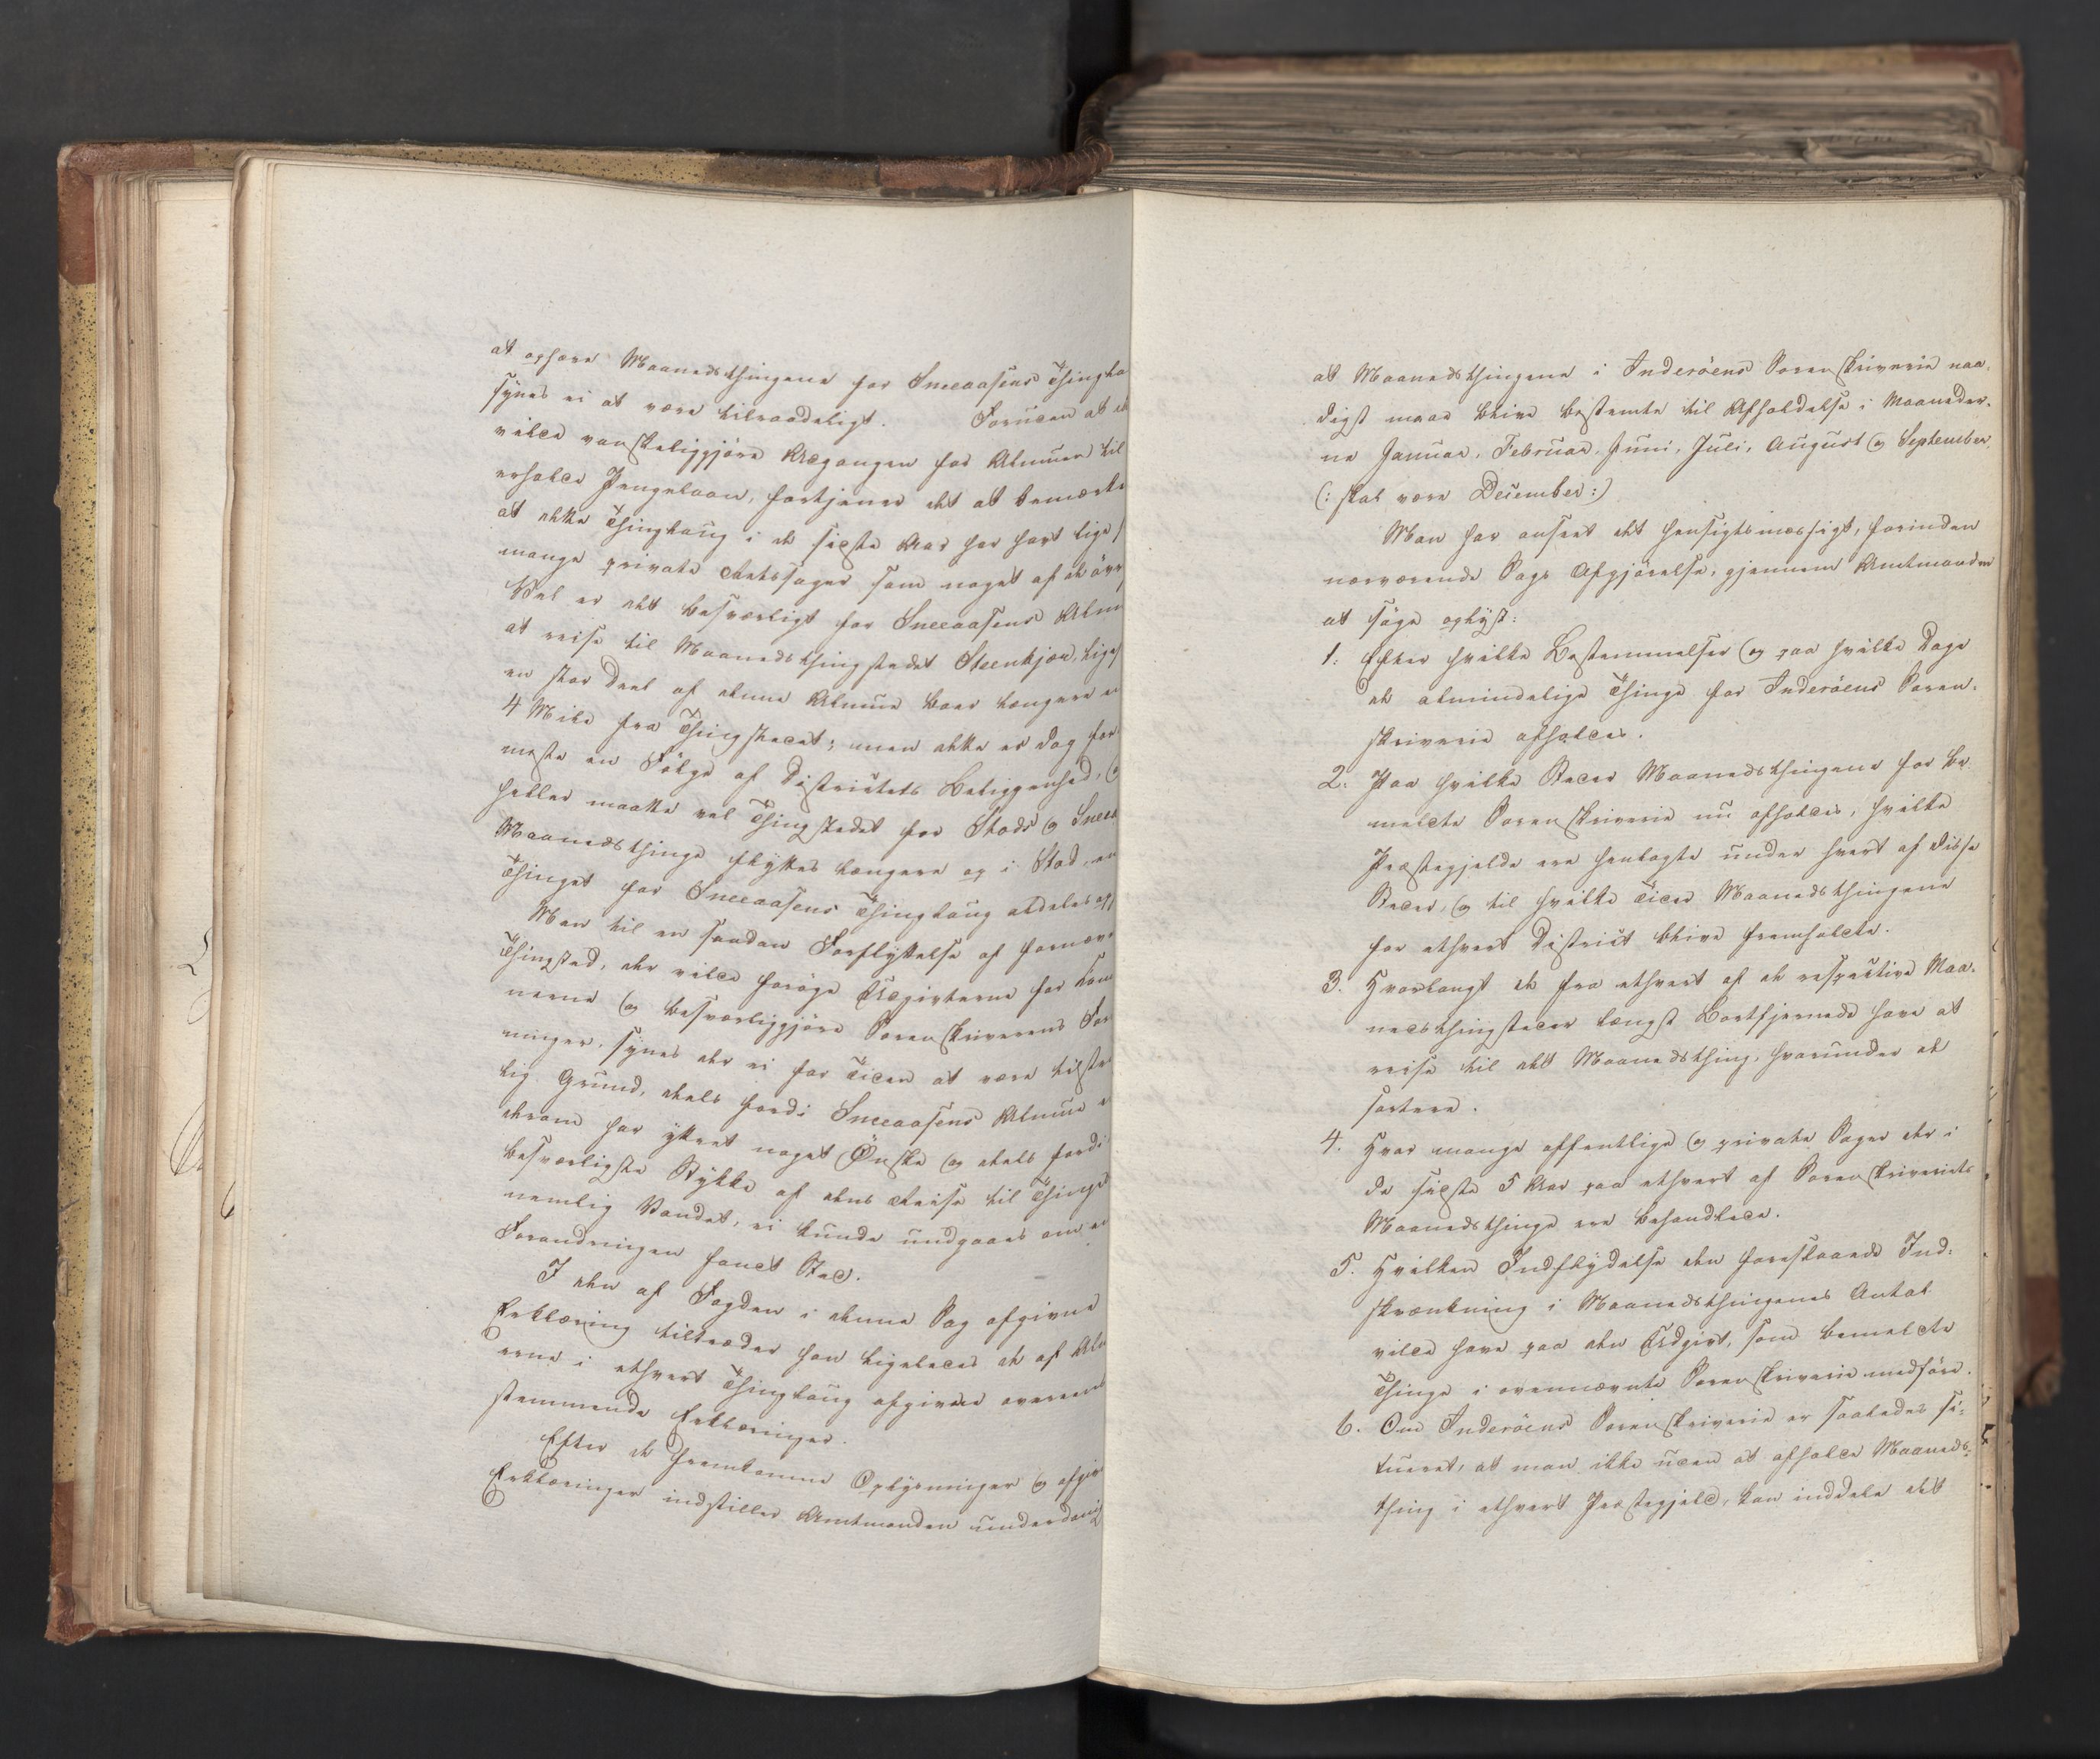 at ophæve Maanedsthingene for Sneeaasens Thingla
synes ei at være tilraadeligt. Foruden at d
vilde vanskeliggjøre Adgangen for Almuen til
erholde Pengelaan, fortjener det at bemærke
at dette Thinglaug i de sidste Aar har havt lige s
mange private Retssager som noget af de övr
Vel er det besværligt for Sneeaasens Almu
at reise til Maanedsthingstedet Steenkjær, liges
en stor Deel af denne Almue boer længere en
4 Mile fra Thingstedet; men dette er dog for
meste en Fölge af Districtets Beliggenhed, og
heller maatte vel Thingstedet for Stods og Sneea
Maanedsthinge flyttes længere op i Stod, en
Thinget for Sneeaasens Thinglaug aldeles op
Men til en saadan Forflyttelse af fornævn
Thingsted, der vilde foröge Udgivterne for Com
nerne og besværliggjöre Sorenskriverens For
ninger, synes der ei for Tiden at være tilstr
lig Grund, deels fordi Sneeaasens Almue e
derom har yttret noget Önske og deels fordi
besværligste Stykke af dens Reise til Thinget
nemlig Vandet, ei kunde undgaaes om en
Forandringen fandt Sted.
I den af Fogden i denne Sag afgivne
Erklæring tiltræder han ligeledes de af Alm
erne i ethvert Thinglaug afgivne overeens
stemmende Erklæringer.
Efter de fremkomne Oplysninger og afgiv
Erklæringer indstiller Amtmanden underdanig
at Maanedsthingene i Inderöens Sorenskriverie naa-
digst maae blive bestemte til Afholdelse i Maaneder-
ne Januar, Februar, Juni, Juli, August og September
(: skal være December :)
Man har anseet det hensigtsmæssigt, forinden
nærværende Sags Afgjörelse, gjennem Amtmanden
at söge oplyst:
1: Efter hvilke Bestemmelser og paa hvilke Dage
de almindelige Thinge for Inderöens Soren-
skriverie afholdes.
2: Paa hvilke Steder Maanedsthingene for be-
meldte Sorenskriverie nu afholdes, hvilke
Præstegjelde ere henlagte under hvert af disse
Steder, og til hvilke Tider Maanedsthingene
for ethvert District blive fremholdte.
3. Hvorlangt de fra ethvert af de respective Maa-
nedsthingsteder længst Bortfjernede have at
reise til det Maanedsthing, hvorunder de
sortere.
4. Hvor mange offentlige og private Sager der i
de sidste 5 Aar paa ethvert af Sorenskriveriets
Maanedsthinge ere behandlede.
5. Hvilken Indflydelse den foreslaaede Ind-
skrænkning i Maanedsthingenes Antal
vilde have paa den Udgivt, som bemeldte
Thinge i ovennævnte Sorenskriverie medföre.
6. Om Inderöens Sorenskriverie er saaledes si-
tueret, at man ikke uden at afholde Maaneds-
thing i ethvert Præstegjeld, kan inddele det